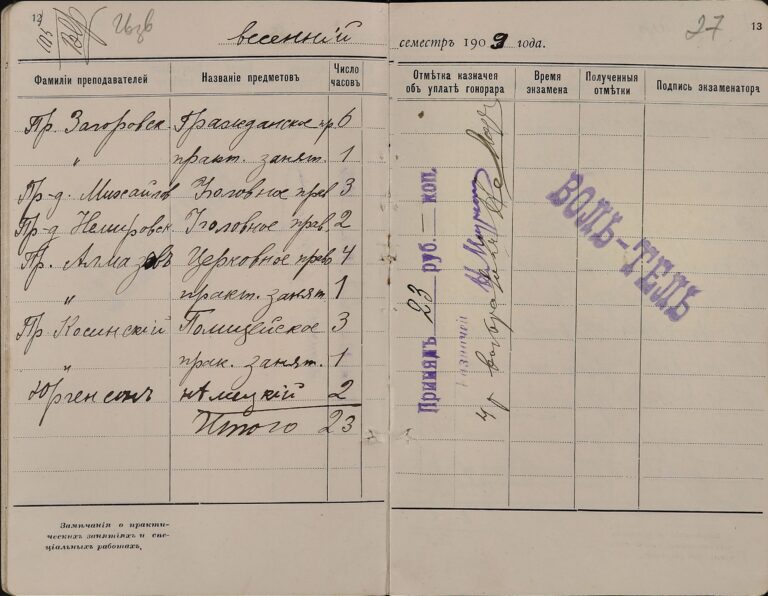 12
весенній
семестръ 1909 года.
27
13
Фамиліи преподавателей
Названіе предметовъ
Число часовъ
Отмѣтка казначея объ уплатѣ гонорара
Время экзамена
Полученныя отмѣтки
Подпись экзаменатора
Пр. Загоровск. Гражданское пр. 6
" практ. занят. 1
Пр-д. Михайлов Уголовное прав 3
Пр-д Немировск. Уголовное прав. 2
Пр. Алмазовъ Церковное прав 4
" практ. занят 1
Пр Косинскій Полицейское 3
" прак. занят. 1
Юргенсонъ нѣмецкій 2
Итого 23
Принялъ 23 руб. — коп.
Казначей
ВОЛЬ-ТЕЛЬ
Замѣчанія о практи-
ческихъ занятіяхъ и спе-
ціальныхъ работахъ.